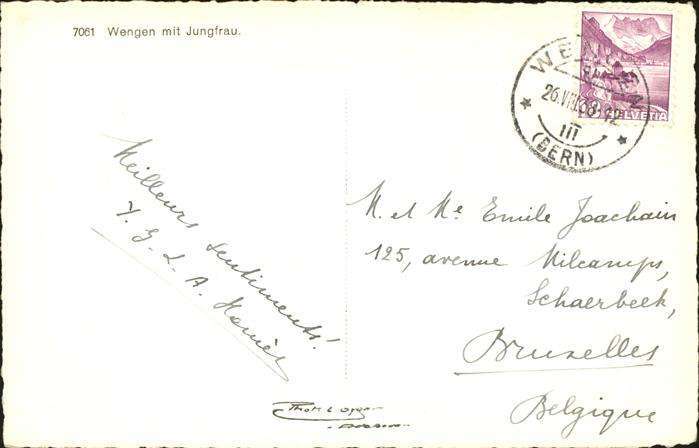 7061 Wengen mit Jungfrau.
WENGEN
26.VIII.38-12
III
(BERN)
HELVETIA
Meilleurs sentiments!
Y. G. L. A.
M. et Me Emile Joachain
125, avenue Milcamps,
Schaerbeek,
Bruxelles
Belgique